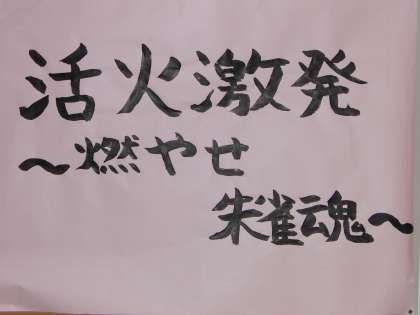 活火激発
～燃やせ
朱雀魂～